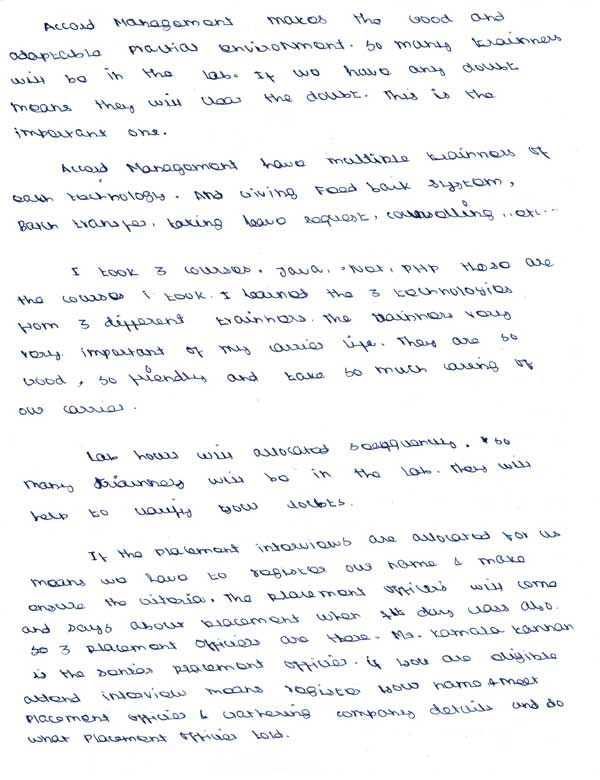 Accord Management makes the Good and
adaptable practial environment. so many trainners
will be in the lab. If we have any doubt
means they will clear the doubt. This is the
important one.
Accord Management have multiple trainners of
each technology. And Giving Feed back system,
Batch transfer, taking leave request, counselling, .. etc...
I took 3 courses. Java, .Net, PHP these are
the courses i took. I learned the 3 technologies
from 3 different trainners. The trainners very
very important of my carrier life. They are so
Good, so friendly and take so much caring of
our carrier.
Lab hours will allocated so
many trainners will be in the lab. They will
help to clarify your doubts.
If the placement interviews are allocated for us
means we have to register our name & make
ensure the criteria. The placement officers will come
and says about placement when 1st day class also.
so 3 placement officers are there. Mr. Kamala Kannan
is the senior placement officer. if you are eligible
attend interview means register your name & meet
placement officer & Gathering company details and do
what placement officer told.